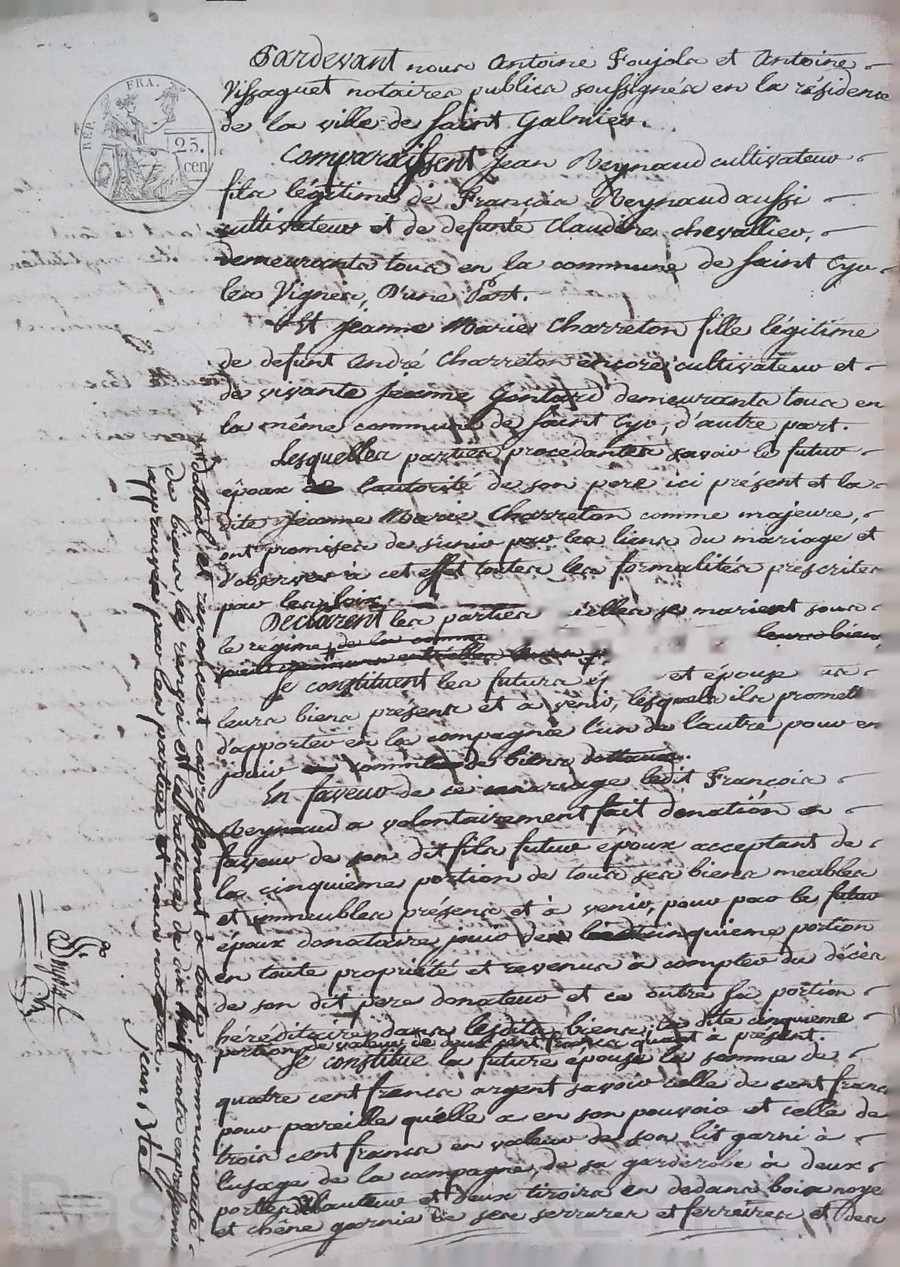 REP. FRA.
25.
cen
Pardevant nous Antoine Foujols et Antoine
Vissaguet notaires publics soussignés en la résidence
de la ville de Saint Galmier.
Comparaissent Jean Reynaud cultivateur
fils légitime de François Reynaud aussi
cultivateur et de defunte Claudine chevallier,
demeurants tous en la commune de Saint Cyr
les Vignes, D'une Part.
Et Jeanne Marie Charreton fille légitime
de defunt André Charreton encore cultivateur et
de vivante Jeanne Gontard demeurants tous en
la même commune de Saint Cyr, d'autre part.
Lesquelles parties procedantes savoir le futur
époux de l'autorité de son pere ici présent et la
dite Jeanne Marie Charreton comme majeure,
ont promises de s'unir par les liens du mariage et
d'observer à cet effet toutes les formalités prescrites
par les loix.
Déclarent les parties elles se marient sous
le régime de la commu leurs biens
Se constituent les futurs ép et épouse
leurs biens présents et à venir, lesquels ils promett
d'apporter en la compagnie l'un de l'autre pour en
jouir comme de biens dottaux.
En faveur de ce mariage ledit François
Reynaud a volontairement fait donation en
faveur de son dit fils futur époux acceptant de
la cinquieme portion de tous ses biens meubles
et immeubles présents et à venir, pour par le futur
époux donataire jouir de cinquieme portion
en toute propriété et revenus à compter du décès
de son dit pere donateur et ce outre sa portion
héréditaire dans lesdits biens, la dite cinquieme
portion de valeur de deux cent francs quant à présent.
Se constitue la future épouse la somme de
quatre cent francs argent savoir celle de cent francs
pour pareille qu'elle a en son pouvoir et celle de
trois cent francs en valeur de son lit garni à
l'usage de la campagne, de sa garderobe à deux
portes hauteur et deux tiroirs en dedans bois noye
et chêne garnis de ses serrures et ferreires et des
dottal et renoncent expressément à toute communauté
de biens, le renvoi et ratures de dix huit mots
approuvés par les parties et nous notaires.